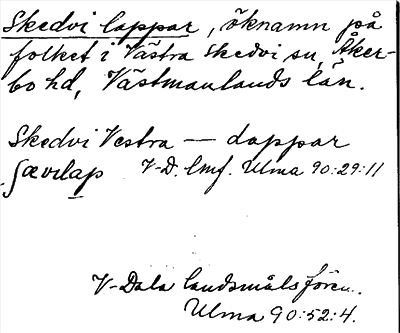 Skedvi lappar, öknamn på
folket i Västra Skedvi sn, Åker-
bo hd, Västmanlands län.
Skedvi Vestra — dappar
ʃævılap V-D. lmf. Ulma 90:29:11
V-Dala landsmålsfören.
Ulma 90:52:4.